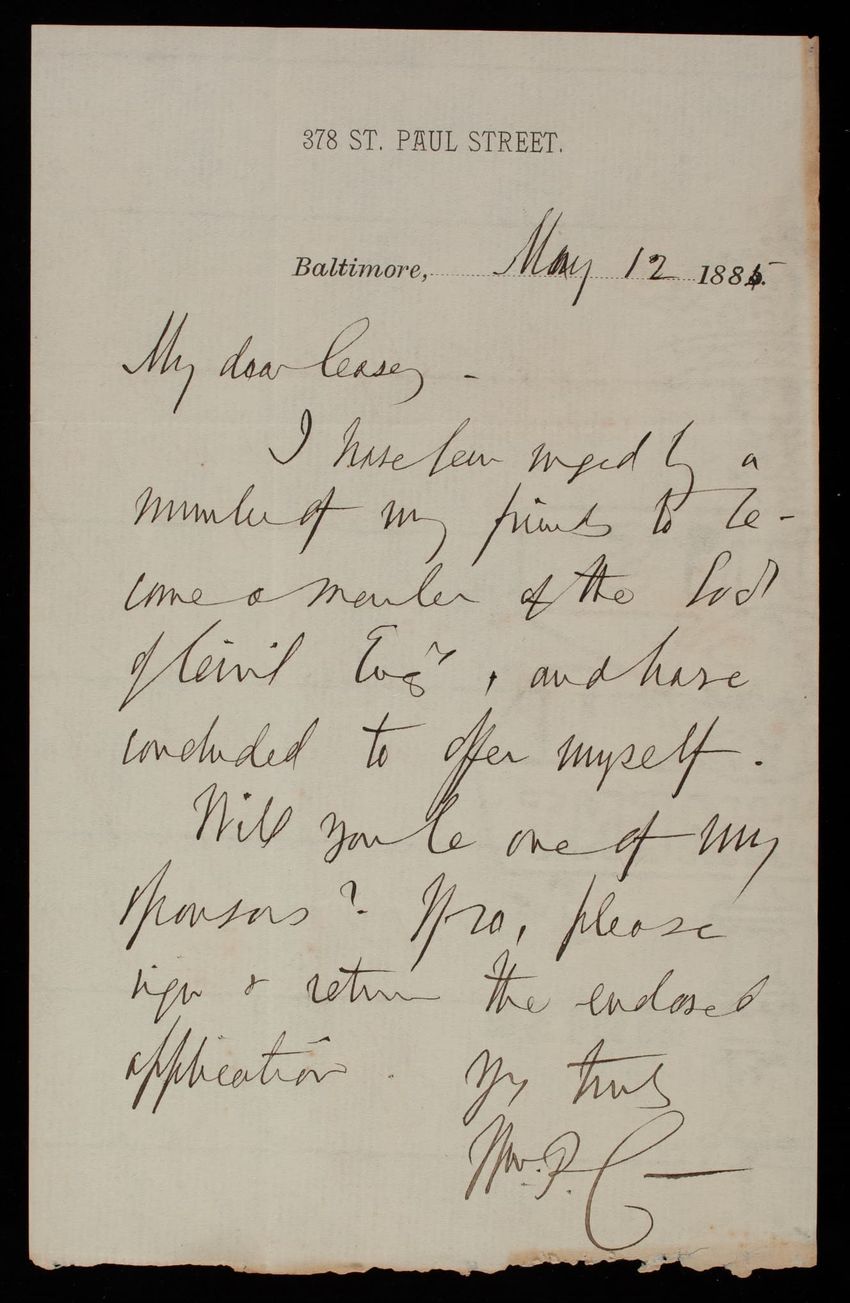 378 ST. PAUL STREET.
Baltimore, May 12 1885.
My dear Casey -
I have been urged by a
number of my friends to be-
come a member of the Soc
of Civil Engrs, and have
concluded to offer myself.
Will you be one of my
sponsors? If so, please
sign & return the enclosed
application. Yrs truly
Wm. P. C